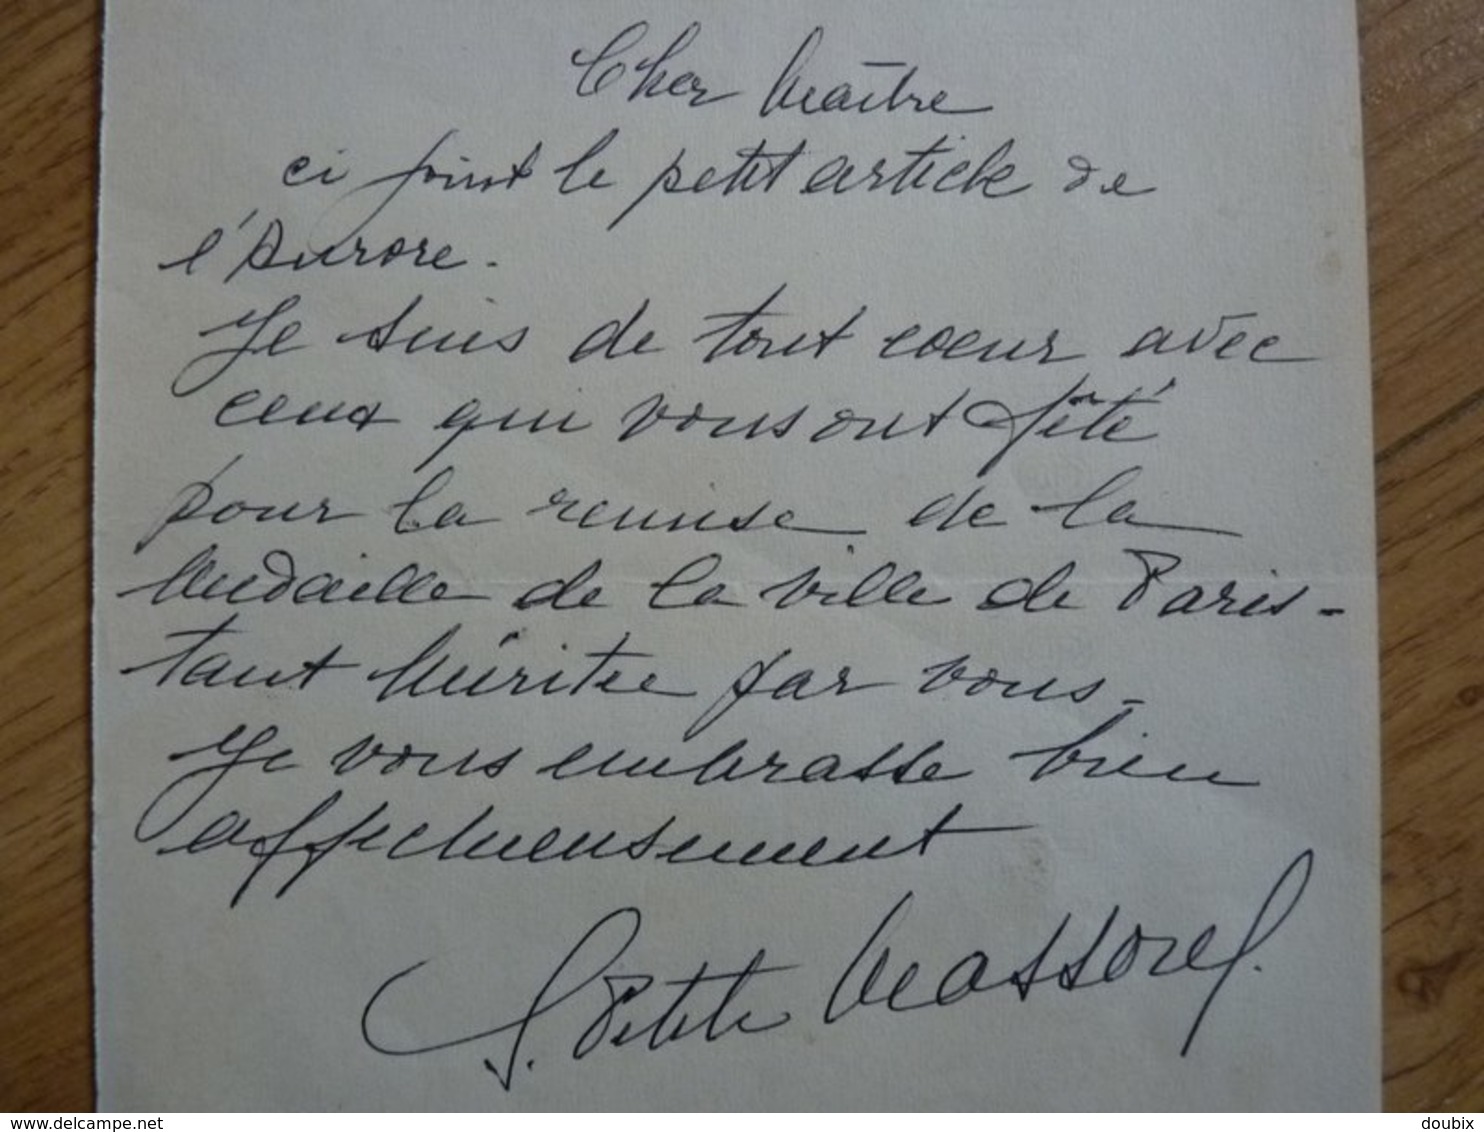 Cher Maître
ci joint le petit article de
l'Aurore.
Je suis de tout coeur avec
ceux qui vous ont fêté
pour la remise de la
Médaille de la ville de Paris -
tant Méritée par vous -
Je vous embrasse bien
affectueusement
Petite
doubix